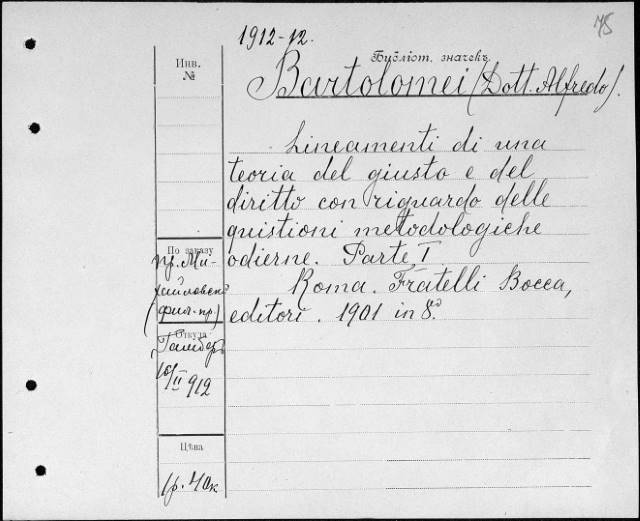 1912-12.
Инв.
№
Библіот. значекъ
Bartolomei (Dott. Alfredo).
Lineamenti di una
teoria del giusto e del
diritto con riguardo delle
quistioni metodologiche
odierne. Parte I.
Roma. Fratelli Bocca,
editori. 1901 in 8º.
По заказу
пр. Ми-
хайловскаго
Откуда
10/II 912
Цѣна
1р. 40к